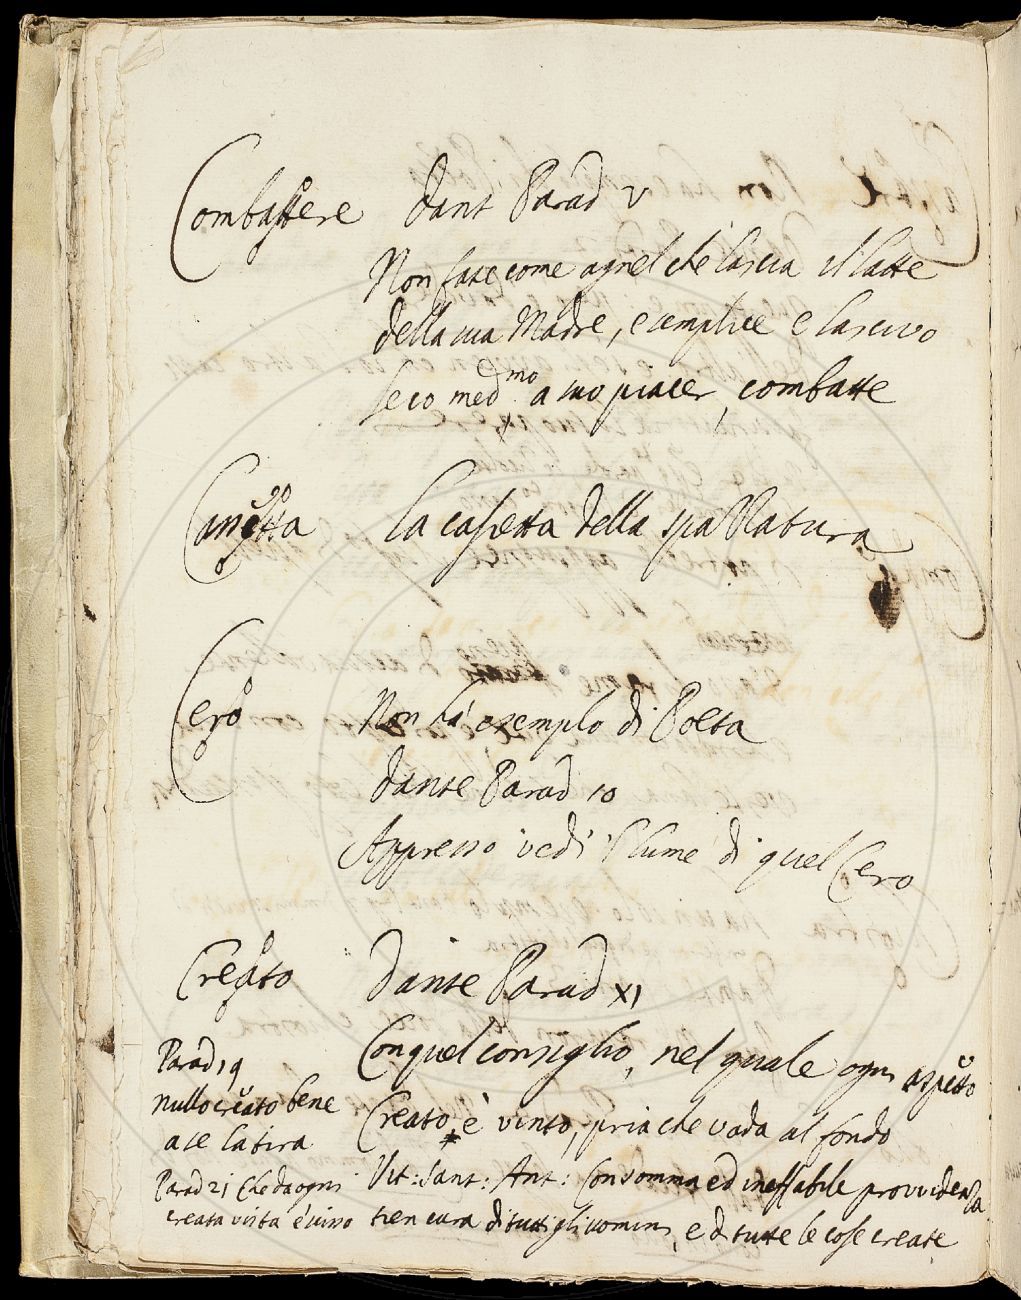 Combattere Dant Parad V
Non fate come agnel che lascia il latte
della sua Madre, e semplice e lascivo
seco med.mo a suo piacer combatte
La cassetta della spazzatura
Cero Non ha esemplo di Poeta
Dante Parad 10
Appresso vedi 'l lume di quel Cero
Creato Dante Parad XI
Con quel consiglio, nel quale ogni aspetto
Creato, è vinto, pria che vada al fondo
Parad 19
nullo creato bene
a se la tira
Parad 21 che da ogni
creata vista è
Vit: Sant: Ant: Con somma ed ineffabile provvidenza
tien cura di tutti gli uomini, e di tutte le cose create